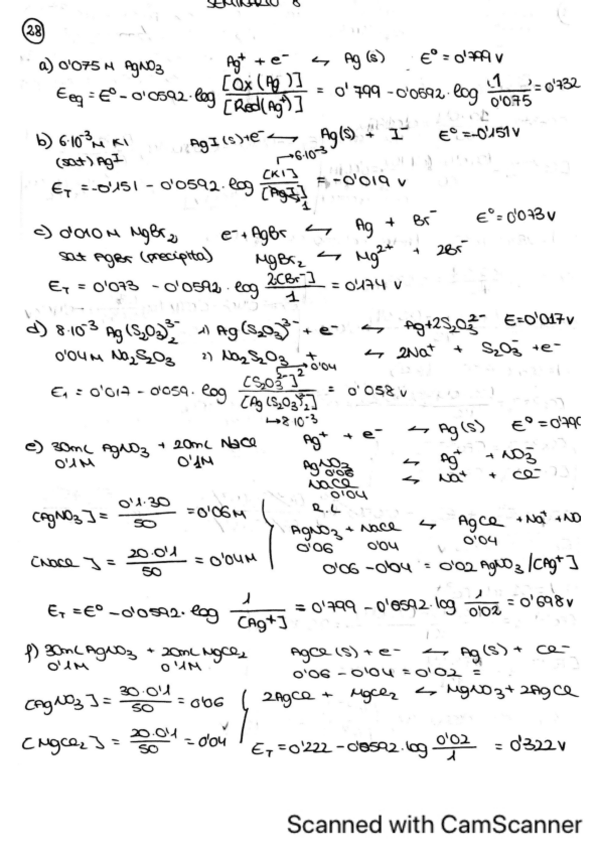 SEMINARIO 8
28
a) 0'075 M AgNO3 Ag+ + e- ⇆ Ag(s) E° = 0'799 V
Eeq = E° - 0'0592 · log [Ox(Ag)]/[Red(Ag+)] = 0'799 - 0'0592 · log 1/0'075 = 0'732
b) 6·10-3 M KI AgI(s) + e- ⟷ Ag(s) + I- E° = -0'151 V
(sat) AgI → 6·10-3
ET = -0'151 - 0'0592 · log [KI]/[AgI] = -0'019 V
1
c) 0'010 M MgBr2 e- + AgBr ⇆ Ag + Br- E° = 0'073 V
sat AgBr (precipita) MgBr2 ⇆ Mg2+ + 2Br-
ET = 0'073 - 0'0592 · log 2[Br-]/1 = 0'174 V
d) 8·10-3 Ag(S2O3)2 3- 1) Ag(S2O3)3- + e- ⇆ Ag + 2S2O3 2- E = 0'017 V
0'04 M Na2S2O3 2) Na2S2O3 + ⇆ 2Na+ + S2O3- + e-
→ 0'04
E1 = 0'017 - 0'059 · log [S2O3 2-]2/[Ag(S2O3)2 3-] = 0'058 V
→ 8·10-3
e) 30mL AgNO3 + 20mL NaCl Ag+ + e- ⇆ Ag(s) E° = 0'799
0'1M 0'1M AgNO3 ⇆ Ag+ + NO3-
0'06
NaCl ⇆ Na+ + Cl-
0'04
[AgNO3] = 0'1·30/50 = 0'06 M R.L
AgNO3 + NaCl ⇆ AgCl + Na+ + NO
0'06 0'04 0'04
[NaCl] = 20·0'1/50 = 0'04 M 0'06 - 0'04 = 0'02 AgNO3/[Ag+]
ET = E° - 0'0592 · log 1/[Ag+] = 0'799 - 0'0592 · log 1/0'02 = 0'698 V
f) 30mL AgNO3 + 20mL MgCl2 AgCl(s) + e- ⇆ Ag(s) + Cl-
0'1M 0'1M 0'06 - 0'04 = 0'02 =
[AgNO3] = 30·0'1/50 = 0'06 2AgCl + MgCl2 ⇆ MgNO3 + 2AgCl
[MgCl2] = 20·0'1/50 = 0'04 ET = 0'222 - 0'0592 · log 0'02/1 = 0'322 V
Scanned with CamScanner